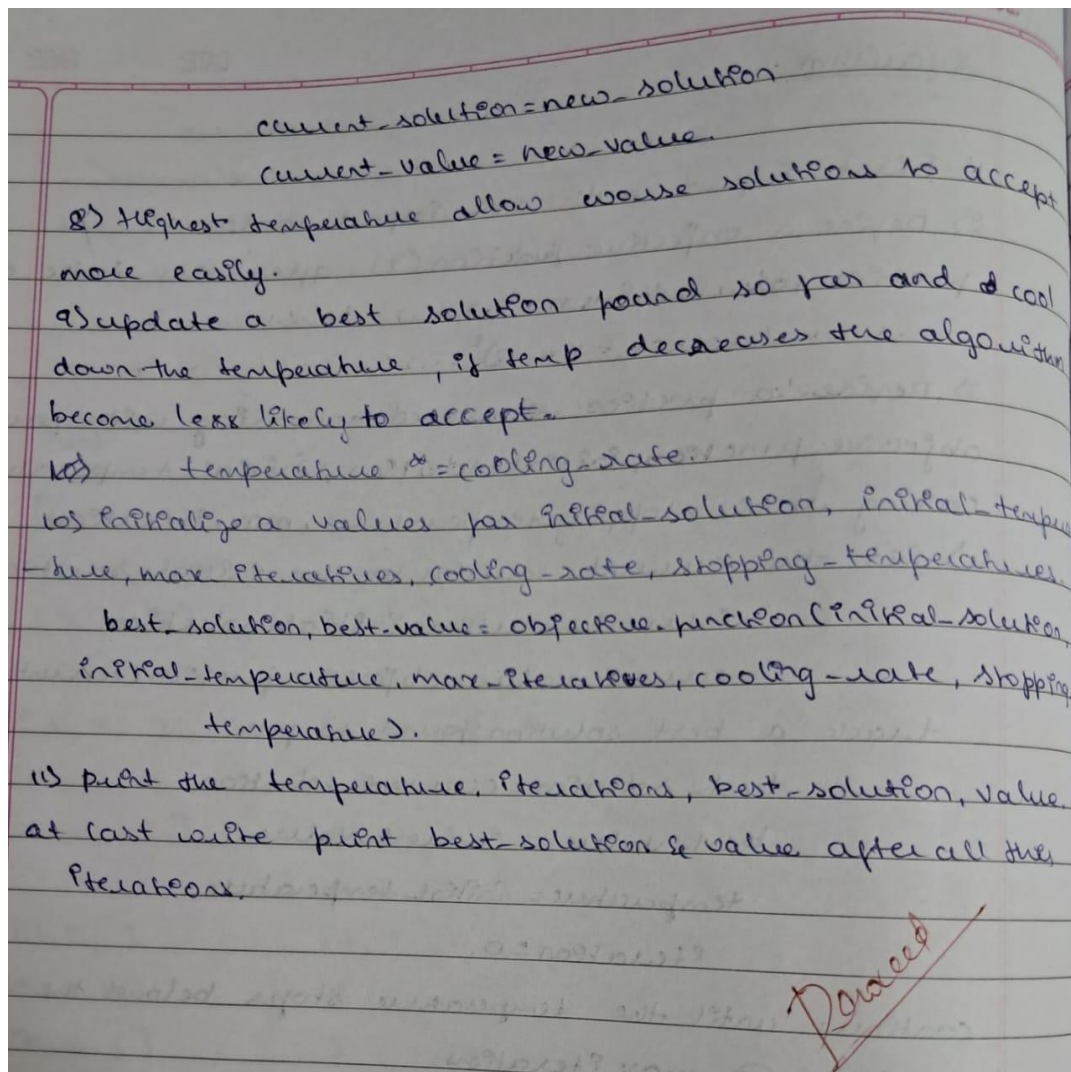 current_solution = new_solution
current_value = new_value.
8) Highest temperature allow worse solutions to accept
more easily.
9) update a best solution found so far and cool
down the temperature, if temp decreases the algorithm
become less likely to accept.
10) temperature *= cooling-rate.
10) initialize a values for initial-solution, initial-tempera
-ture, max iterations, cooling-rate, stopping-temperatures.
best_solution, best-value = objective.function (initial_solution,
initial-temperature, max-iterations, cooling-rate, stopping
temperature).
11) print the temperature, iterations, best-solution, value.
at last write print best-solution & value after all the
iterations.